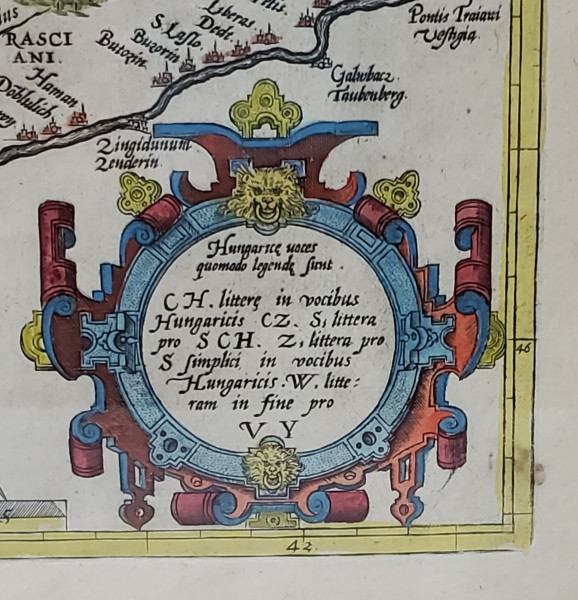 Liberas
Dedt.
S. Laslo
Buzorin
Butozin.
RASCI
ANI.
Haman
Dablulich
Pontis Traiani
Vestigia.
Galwbacz
Taubenberg.
Zingidunum
Zenderin.
Hungaricę uoces
quomodo legendę sunt.
CH. litterę in vocibus
Hungaricis CZ. S, littera
pro SCH. Z, littera pro
S simplici in vocibus
Hungaricis. W. litte:
ram in fine pro
V Y
46
42